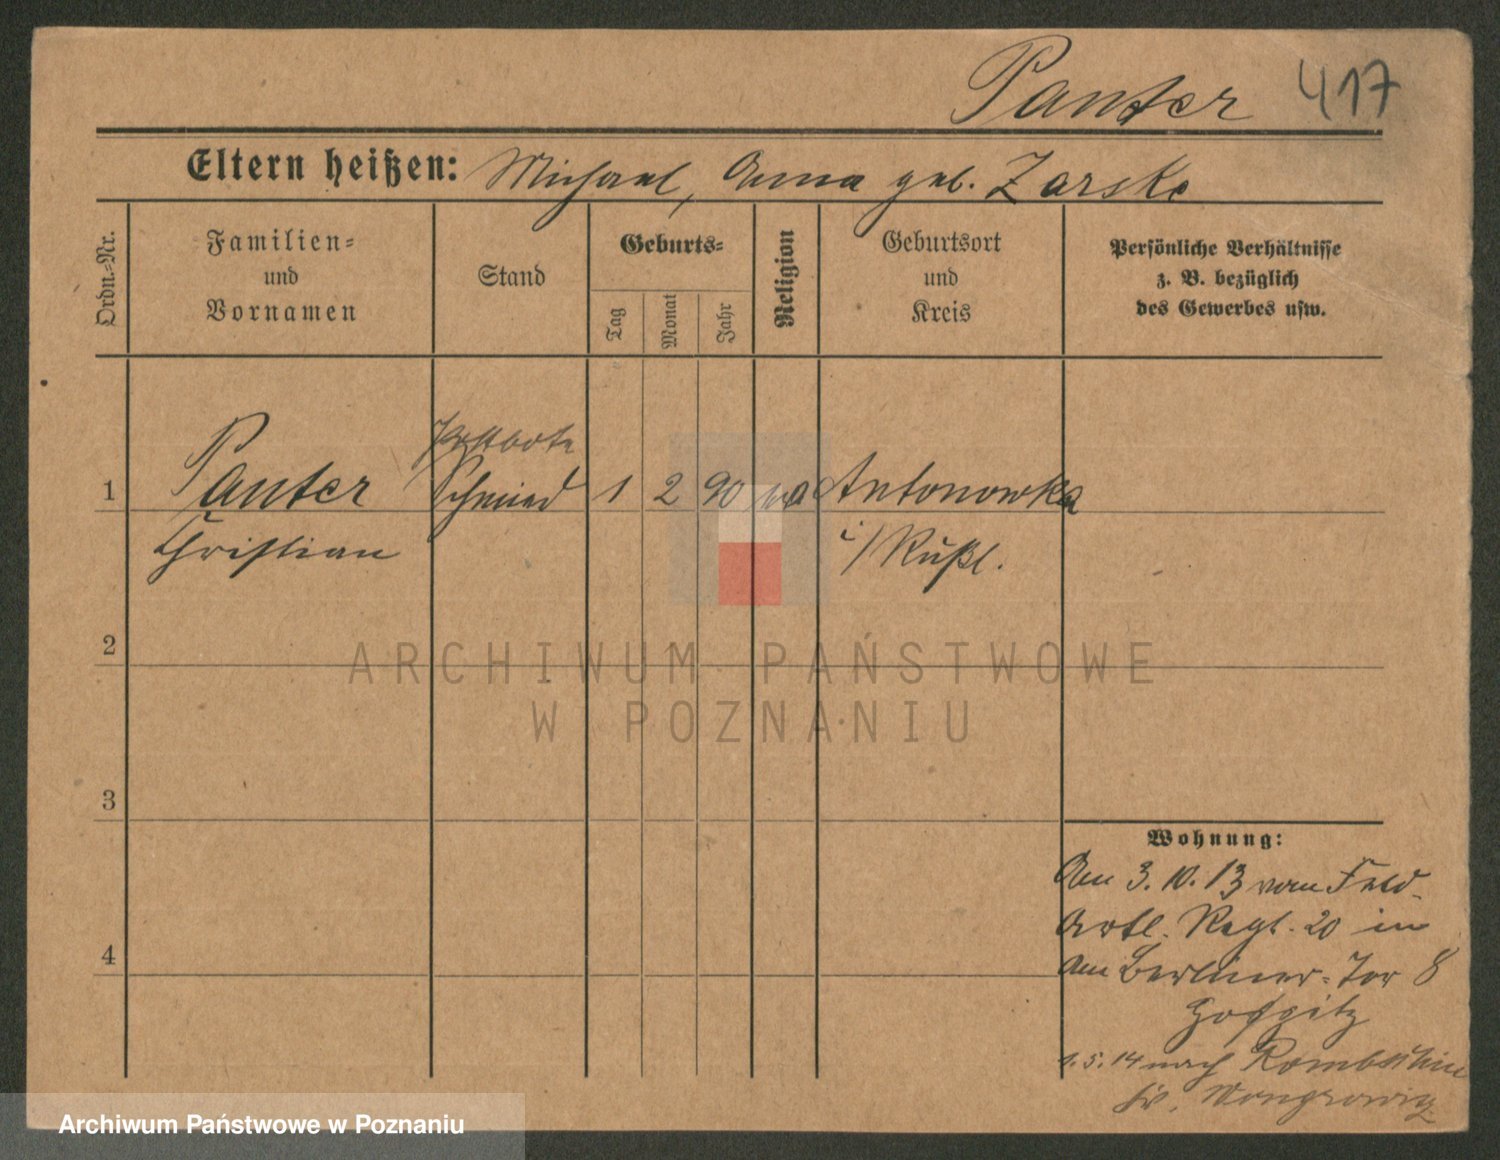 Panter 417
Eltern heißen: Michael, Anna geb. Zarske
Ordn.-Nr.
Familien-
und
Vornamen
Stand
Geburts-
Tag
Monat
Jahr
Religion
Geburtsort
und
Kreis
Persönliche Verhältnisse
z. B. bezüglich
des Gewerbes usw.
Postbote
1 Panter Schmied 1 2 90 Antonowka
Christian i/Rußl.
2
3
4
Wohnung:
Am 3. 10. 13 vom Feld-
Artl. Regt. 20 in
Am Berliner-Tor 8
1. 5. 14 nach
Kr. Wongrowitz
ARCHIWUM PAŃSTWOWE
W POZNANIU
Archiwum Państwowe w Poznaniu